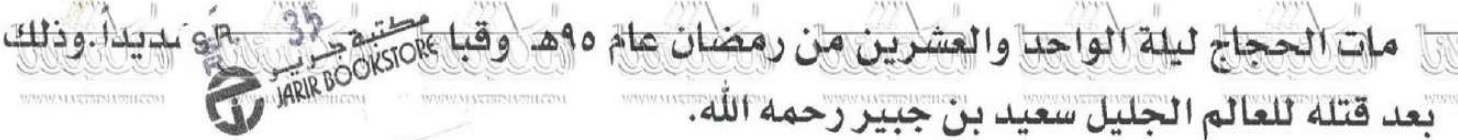 مات الحجاج ليلة الواحد والعشرين من رمضان عام ٩٥هـ وقبا ـديداً. وذلك
بعد قتله للعالم الجليل سعيد بن جبير رحمه الله.
مكتبة جرير
JARIR BOOKSTORE
S.R. 35